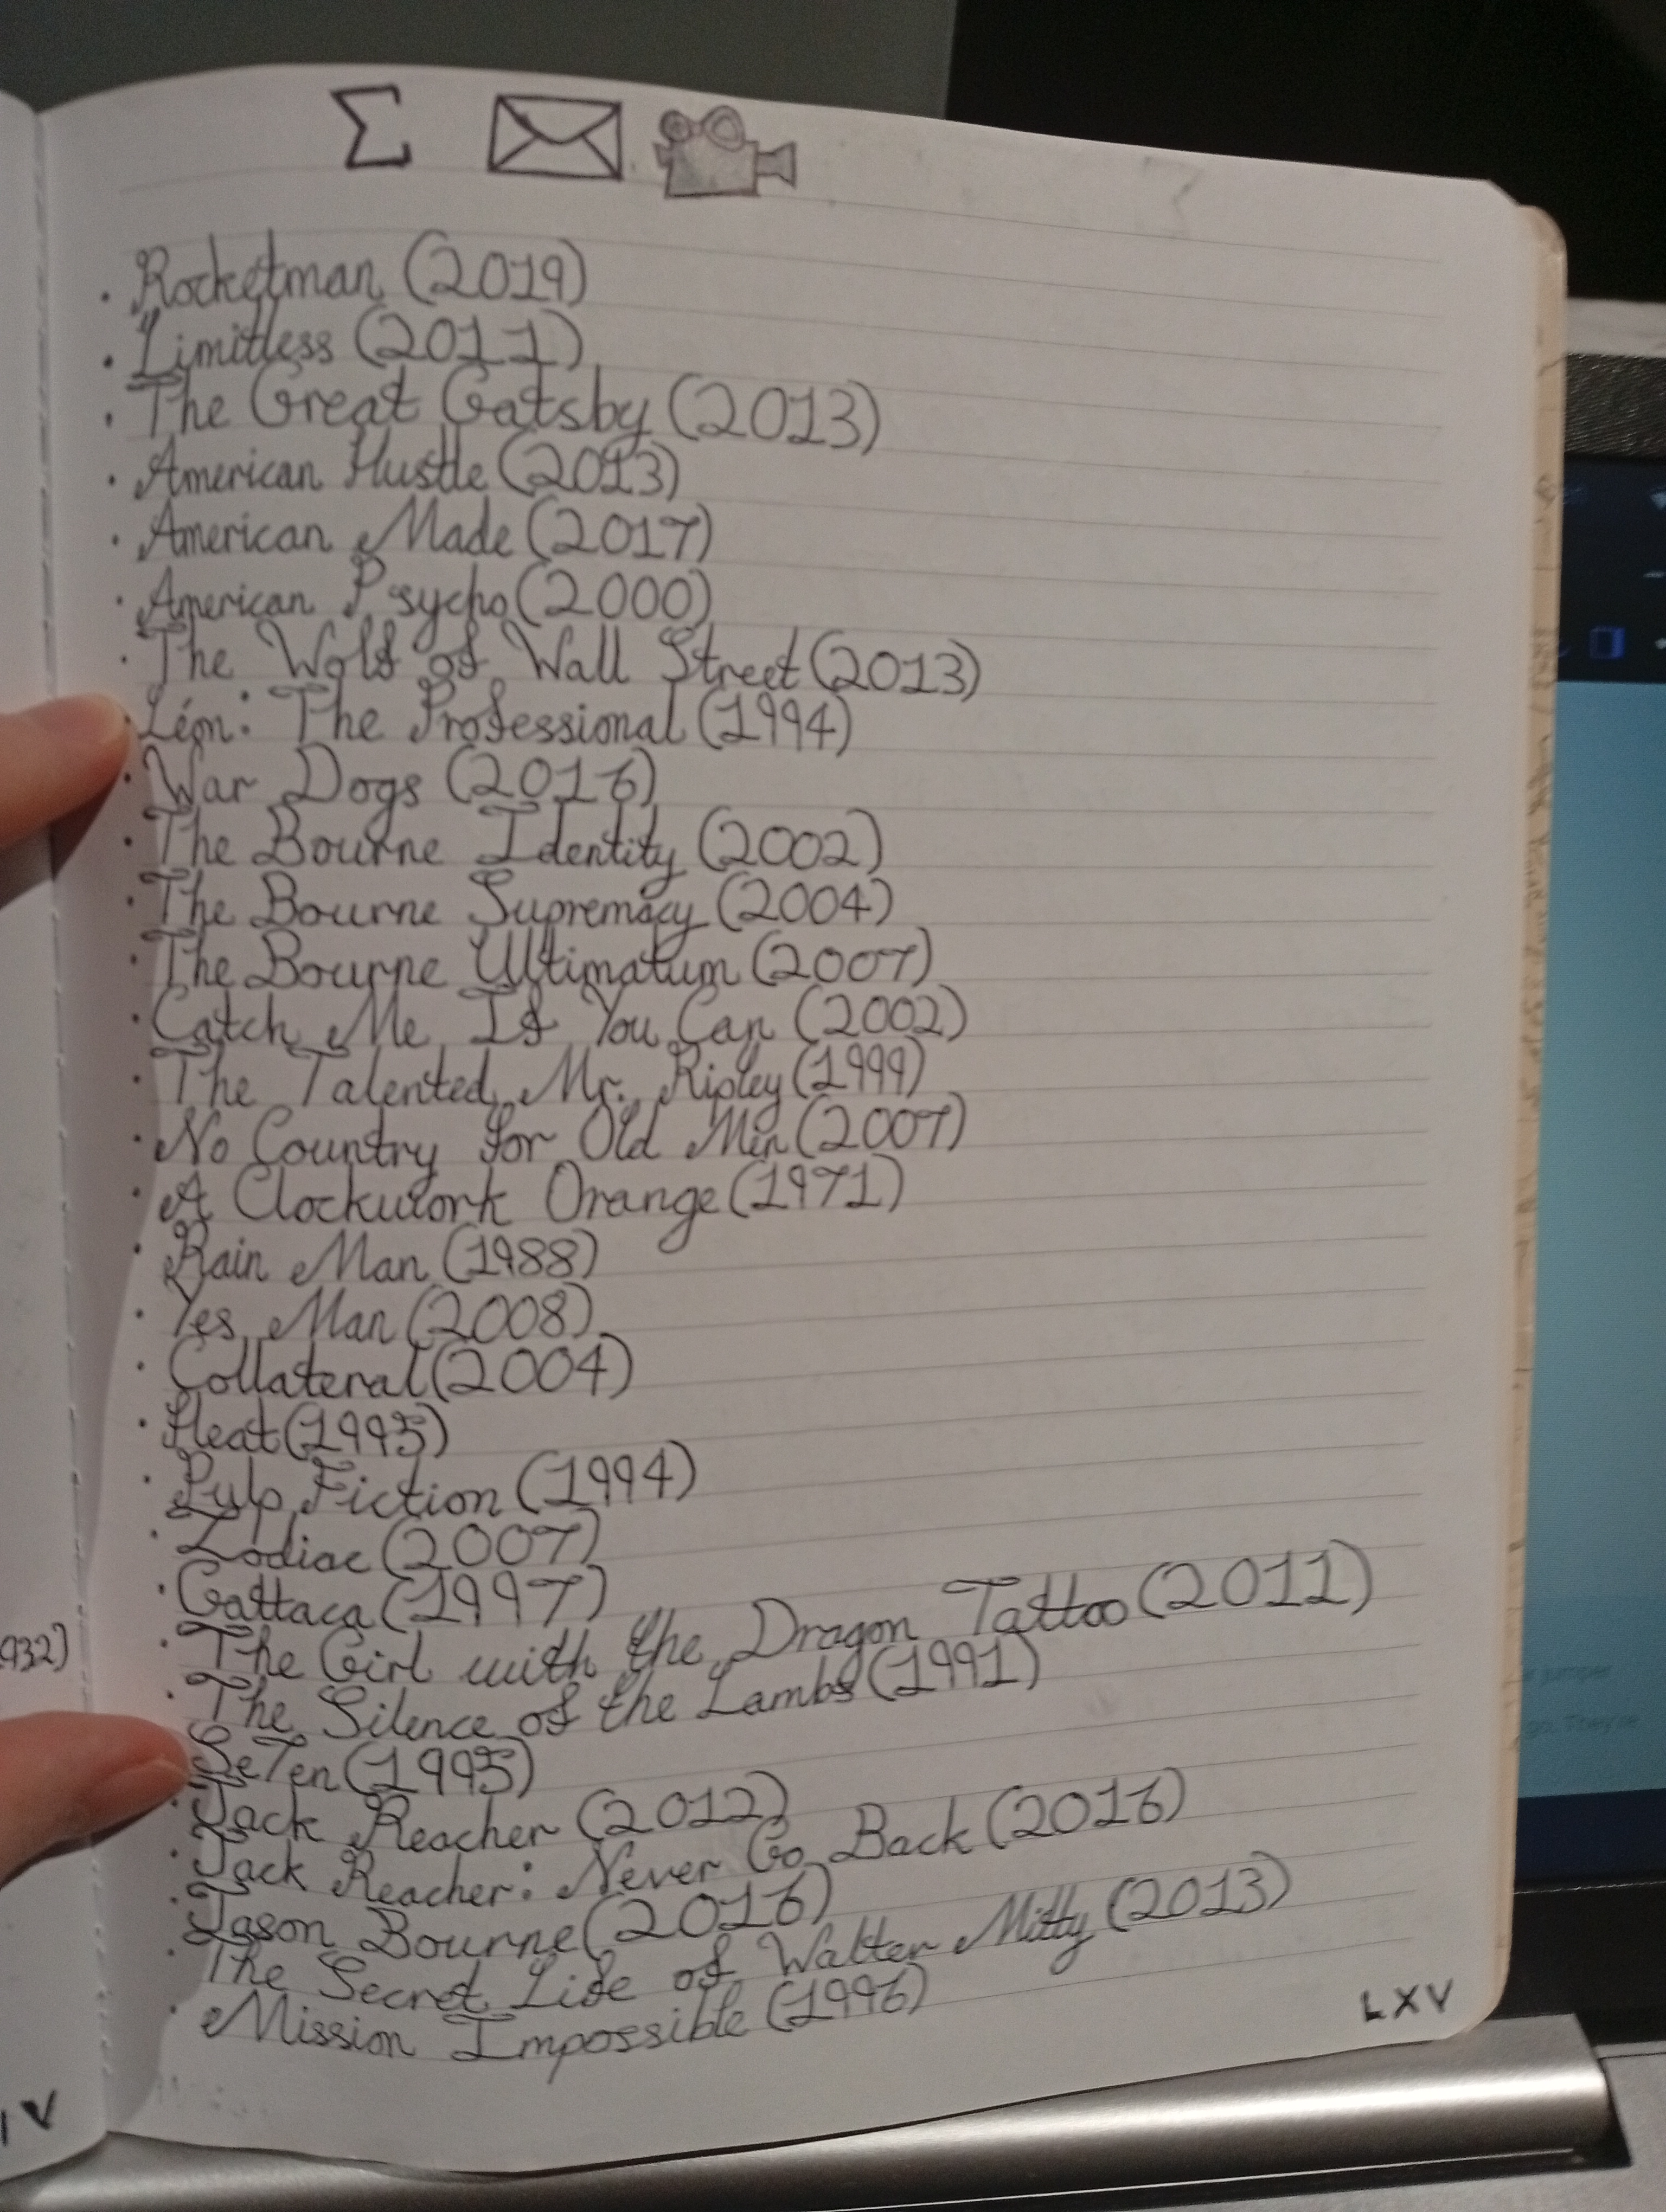 Σ
· Rocketman (2019)
· Limitless (2011)
· The Great Gatsby (2013)
· American Hustle (2013)
· American Made (2017)
· American Psycho (2000)
· The Wolf of Wall Street (2013)
· Léon: The Professional (1994)
· War Dogs (2016)
· The Bourne Identity (2002)
· The Bourne Supremacy (2004)
· The Bourne Ultimatum (2007)
· Catch Me If You Can (2002)
· The Talented Mr. Ripley (1999)
· No Country for Old Men (2007)
· A Clockwork Orange (1971)
· Rain Man (1988)
· Yes Man (2008)
· Collateral (2004)
· Heat (1995)
· Pulp Fiction (1994)
· Zodiac (2007)
· Gattaca (1997)
· The Girl with the Dragon Tattoo (2011)
· The Silence of the Lambs (1991)
Se7en (1995)
· Jack Reacher (2012)
· Jack Reacher: Never Go Back (2016)
· Jason Bourne (2016)
· The Secret Life of Walter Mitty (2013)
· Mission Impossible (1996)
LXV
932)
IV